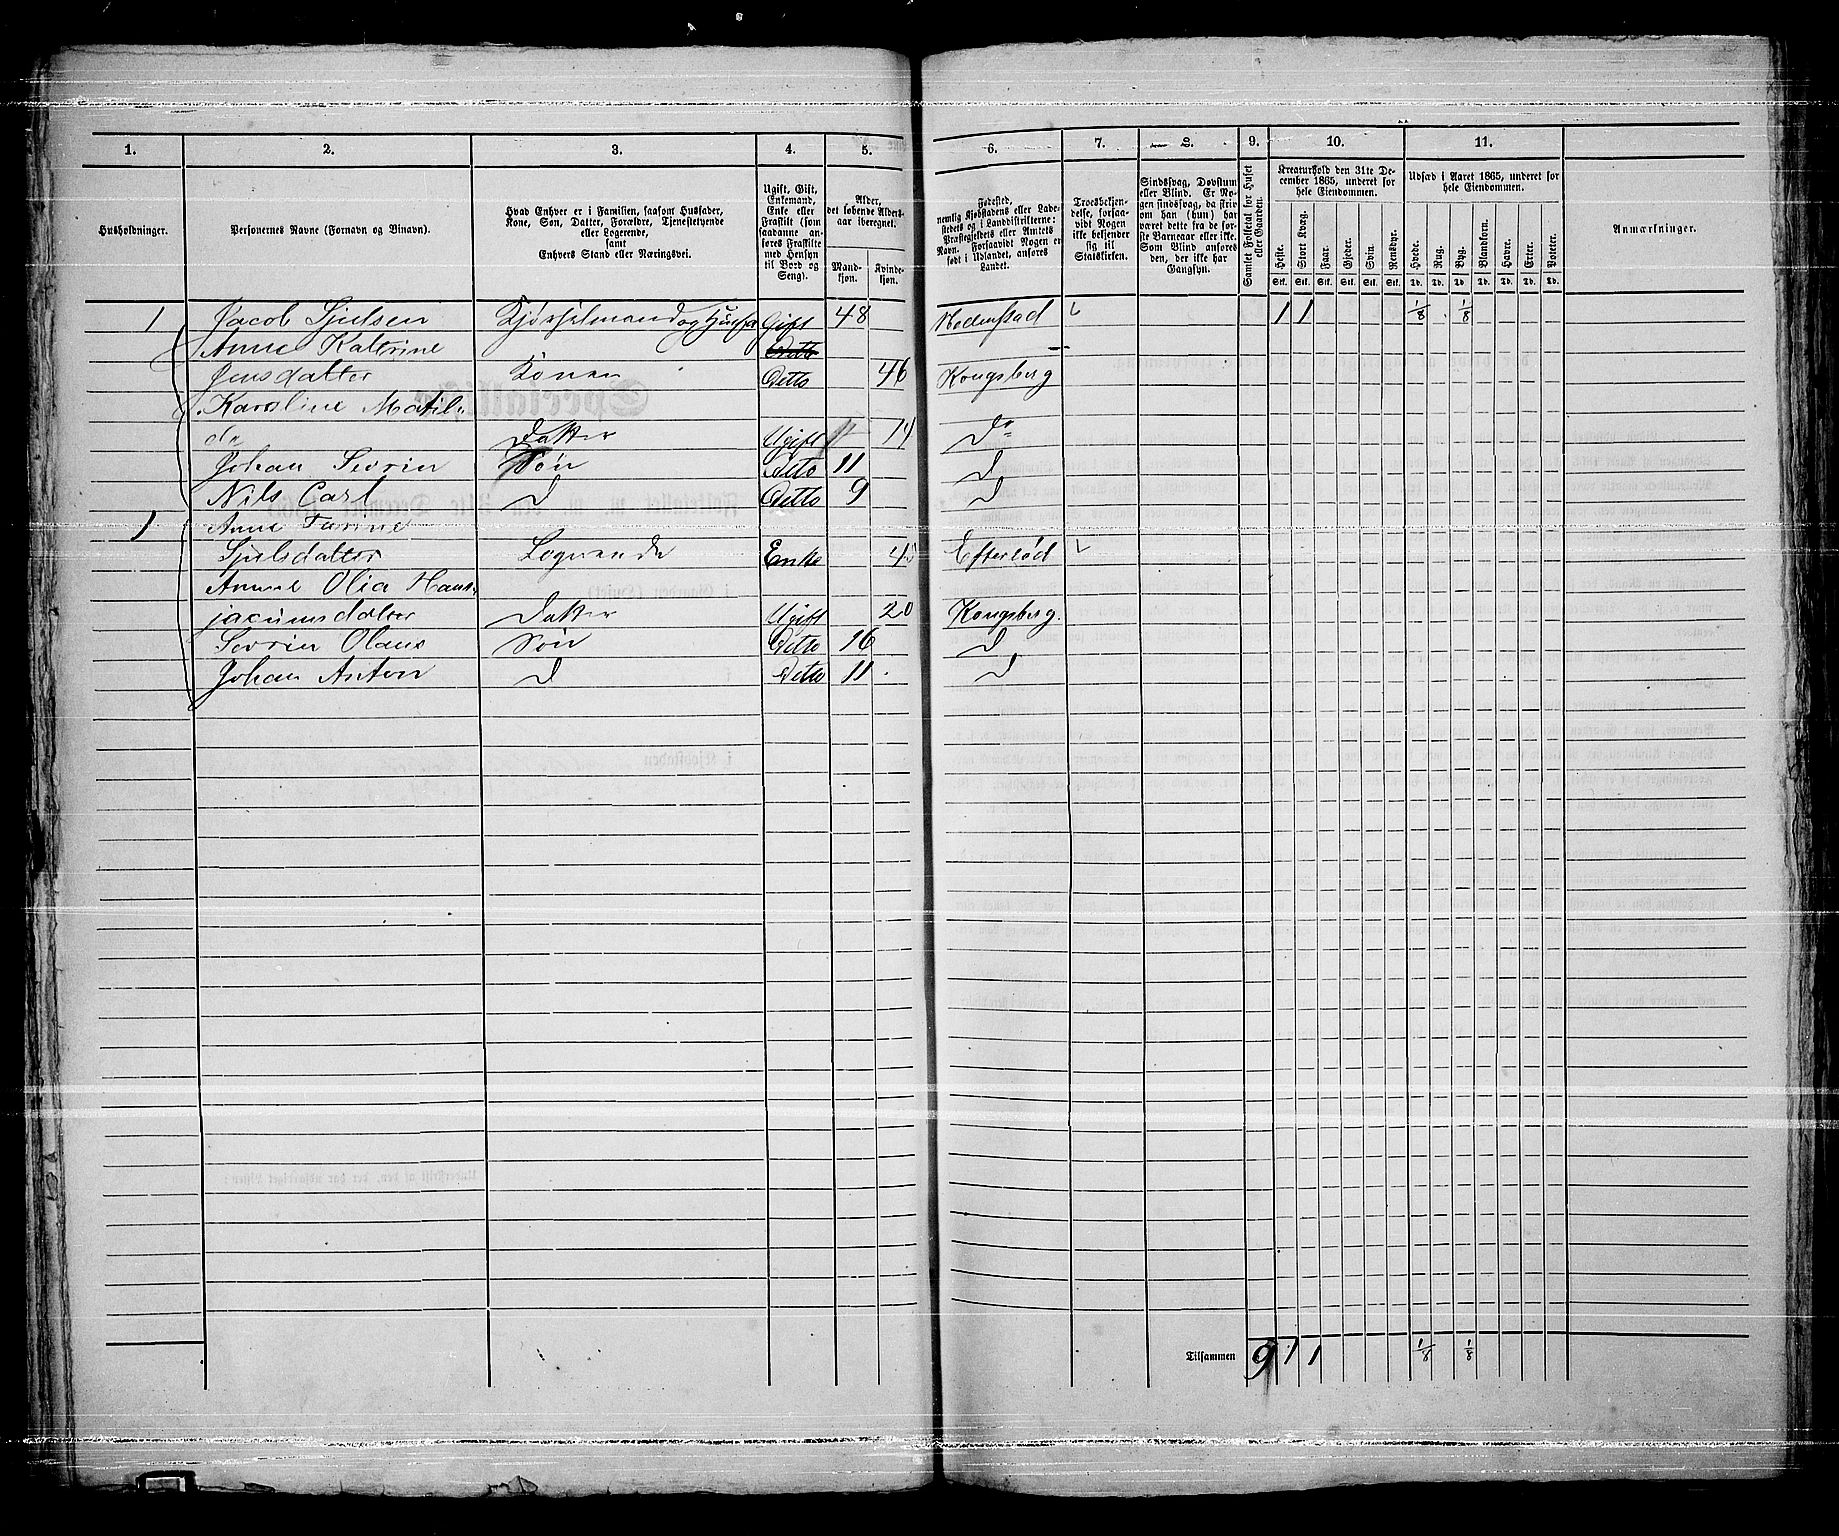 1. 2. 3. 4. 5. 6. 7. 8. 9. 10. 11.
Husholdninger.
Personernes Navne (Fornavn og Binavn).
Hvad Enhver er i Familien, saasom Husfader,
Kone, Søn, Datter, Forældre, Tjenestetyende
eller Logerende,
samt
Enhvers Stand eller Næringsvei.
Ugift, Gift,
Enkemand,
Enke eller
Fraskilt (som
saadanne an-
føres Fraskilte
med Hensyn
til Bord og
Seng).
Alder,
det løbende Alders-
aar iberegnet.
Mand-
kjøn.
Kvinde-
kjøn.
Fødested,
nemlig Kjøbstadens eller Lade-
stedets og i Landdistrikterne:
Præstegjeldets eller Amtets
Navn. Forsaavidt Nogen er
født i Udlandet, anføres
Landet.
Troesbekjen-
delse, forsaa-
vidt Nogen
ikke bekjender
sig til
Statskirken.
Sindssvag, Døvstum
eller Blind. Er No-
gen sindssvag, da skriv
om han (hun) har
været dette fra de før-
ste Barneaar eller ikke.
Som Blind anføres
den, der ikke har
Gangsyn.
Samlet Folketal for Huset
eller Gaarden.
Kreaturhold den 31te De-
cember 1865, underet for
hele Eiendommen.
Heste. Stort Kvæg. Faar. Gjeder. Svin. Rensdyr.
Stk. Stk. Stk. Stk. Stk. Stk.
Udsæd i Aaret 1865, underet for
hele Eiendommen.
Hvede. Rug. Byg. Blandkorn. Havre. Erter. Poteter.
Td. Td. Td. Td. Td. Td. Td.
Anmærkninger.
1 Jacob Sjulsen Kjørselmand og Husfa Gift 48 Hedenstad 1 1 1/8 1/8
Anne Katrine
Jensdatter Konen Ditto 46 Kongsberg
Karoline Matil-
da Datter Ugift 14 Do
Johan Sevrin Søn Ditto 11 D
Nils Carl D Ditto 9 D
1 Anne
Sjulsdatter Logerende Enke Efterlød
Anne Olia Hans-
jacumsdatter Datter Ugift 20 Kongsberg.
Sevrin Olaus Søn Ditto 16 D
Johan Anton D Ditto 11 D
Tilsammen 9 1 1 1/8 1/8